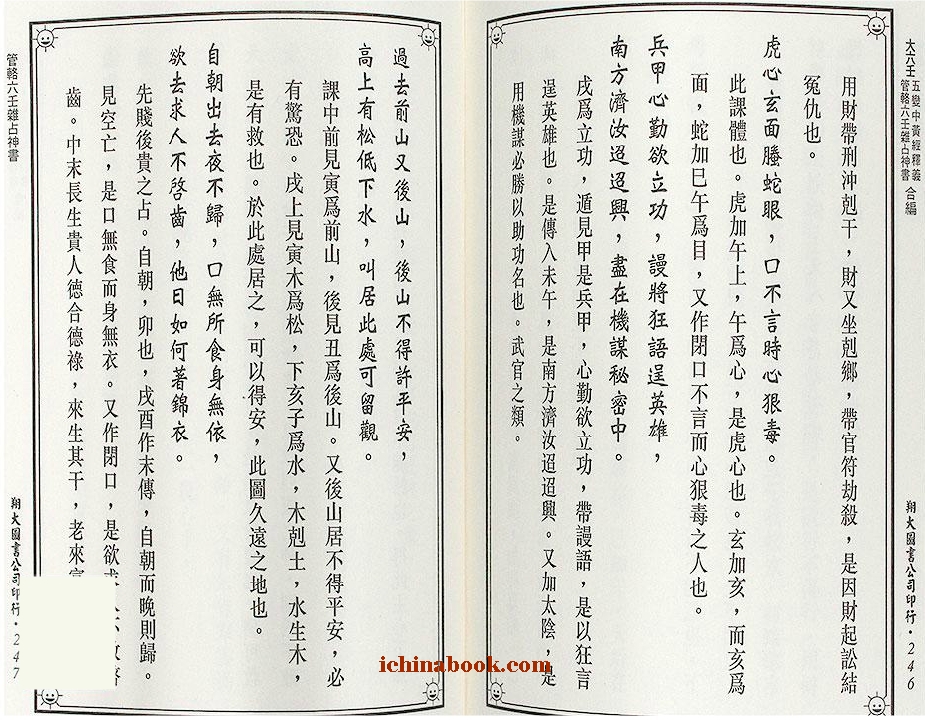 大六壬 五變中黃經釋義 管輅六壬雜占神書 合編
用財帶刑沖剋干，財又坐剋鄉，帶官符劫殺，是因財起訟結
冤仇也。
虎心玄面螣蛇眼，口不言時心狠毒。
此課體也。虎加午上，午爲心，是虎心也。玄加亥，而亥爲
面，蛇加巳午爲目，又作閉口不言而心狠毒之人也。
兵甲心勤欲立功，謾將狂語逞英雄，
南方濟汝迢迢興，盡在機謀秘密中。
戌爲立功，遁見甲是兵甲，心勤欲立功，帶謾語，是以狂言
逞英雄也。是傳入未午，是南方濟汝迢迢興。又加太陰，是
用機謀必勝以助功名也。武官之類。
翔大圖書公司印行・246
過去前山又後山，後山不得許平安，
高上有松低下水，叫居此處可留觀。
課中前見寅爲前山，後見丑爲後山。又後山居不得平安，必
有驚恐。戌上見寅木爲松，下亥子爲水，木剋土，水生木，
是有救也。於此處居之，可以得安，此圖久遠之地也。
自朝出去夜不歸，口無所食身無依，
欲去求人不啓齒，他日如何著錦衣。
先賤後貴之占。自朝，卯也，戌酉作末傳，自朝而晚則歸。
見空亡，是口無食而身無衣。又作閉口，是欲
齒。中末長生貴人德合德祿，來生其干，老來
管輅六壬雜占神書
翔大圖書公司印行・247
ichinabook.com